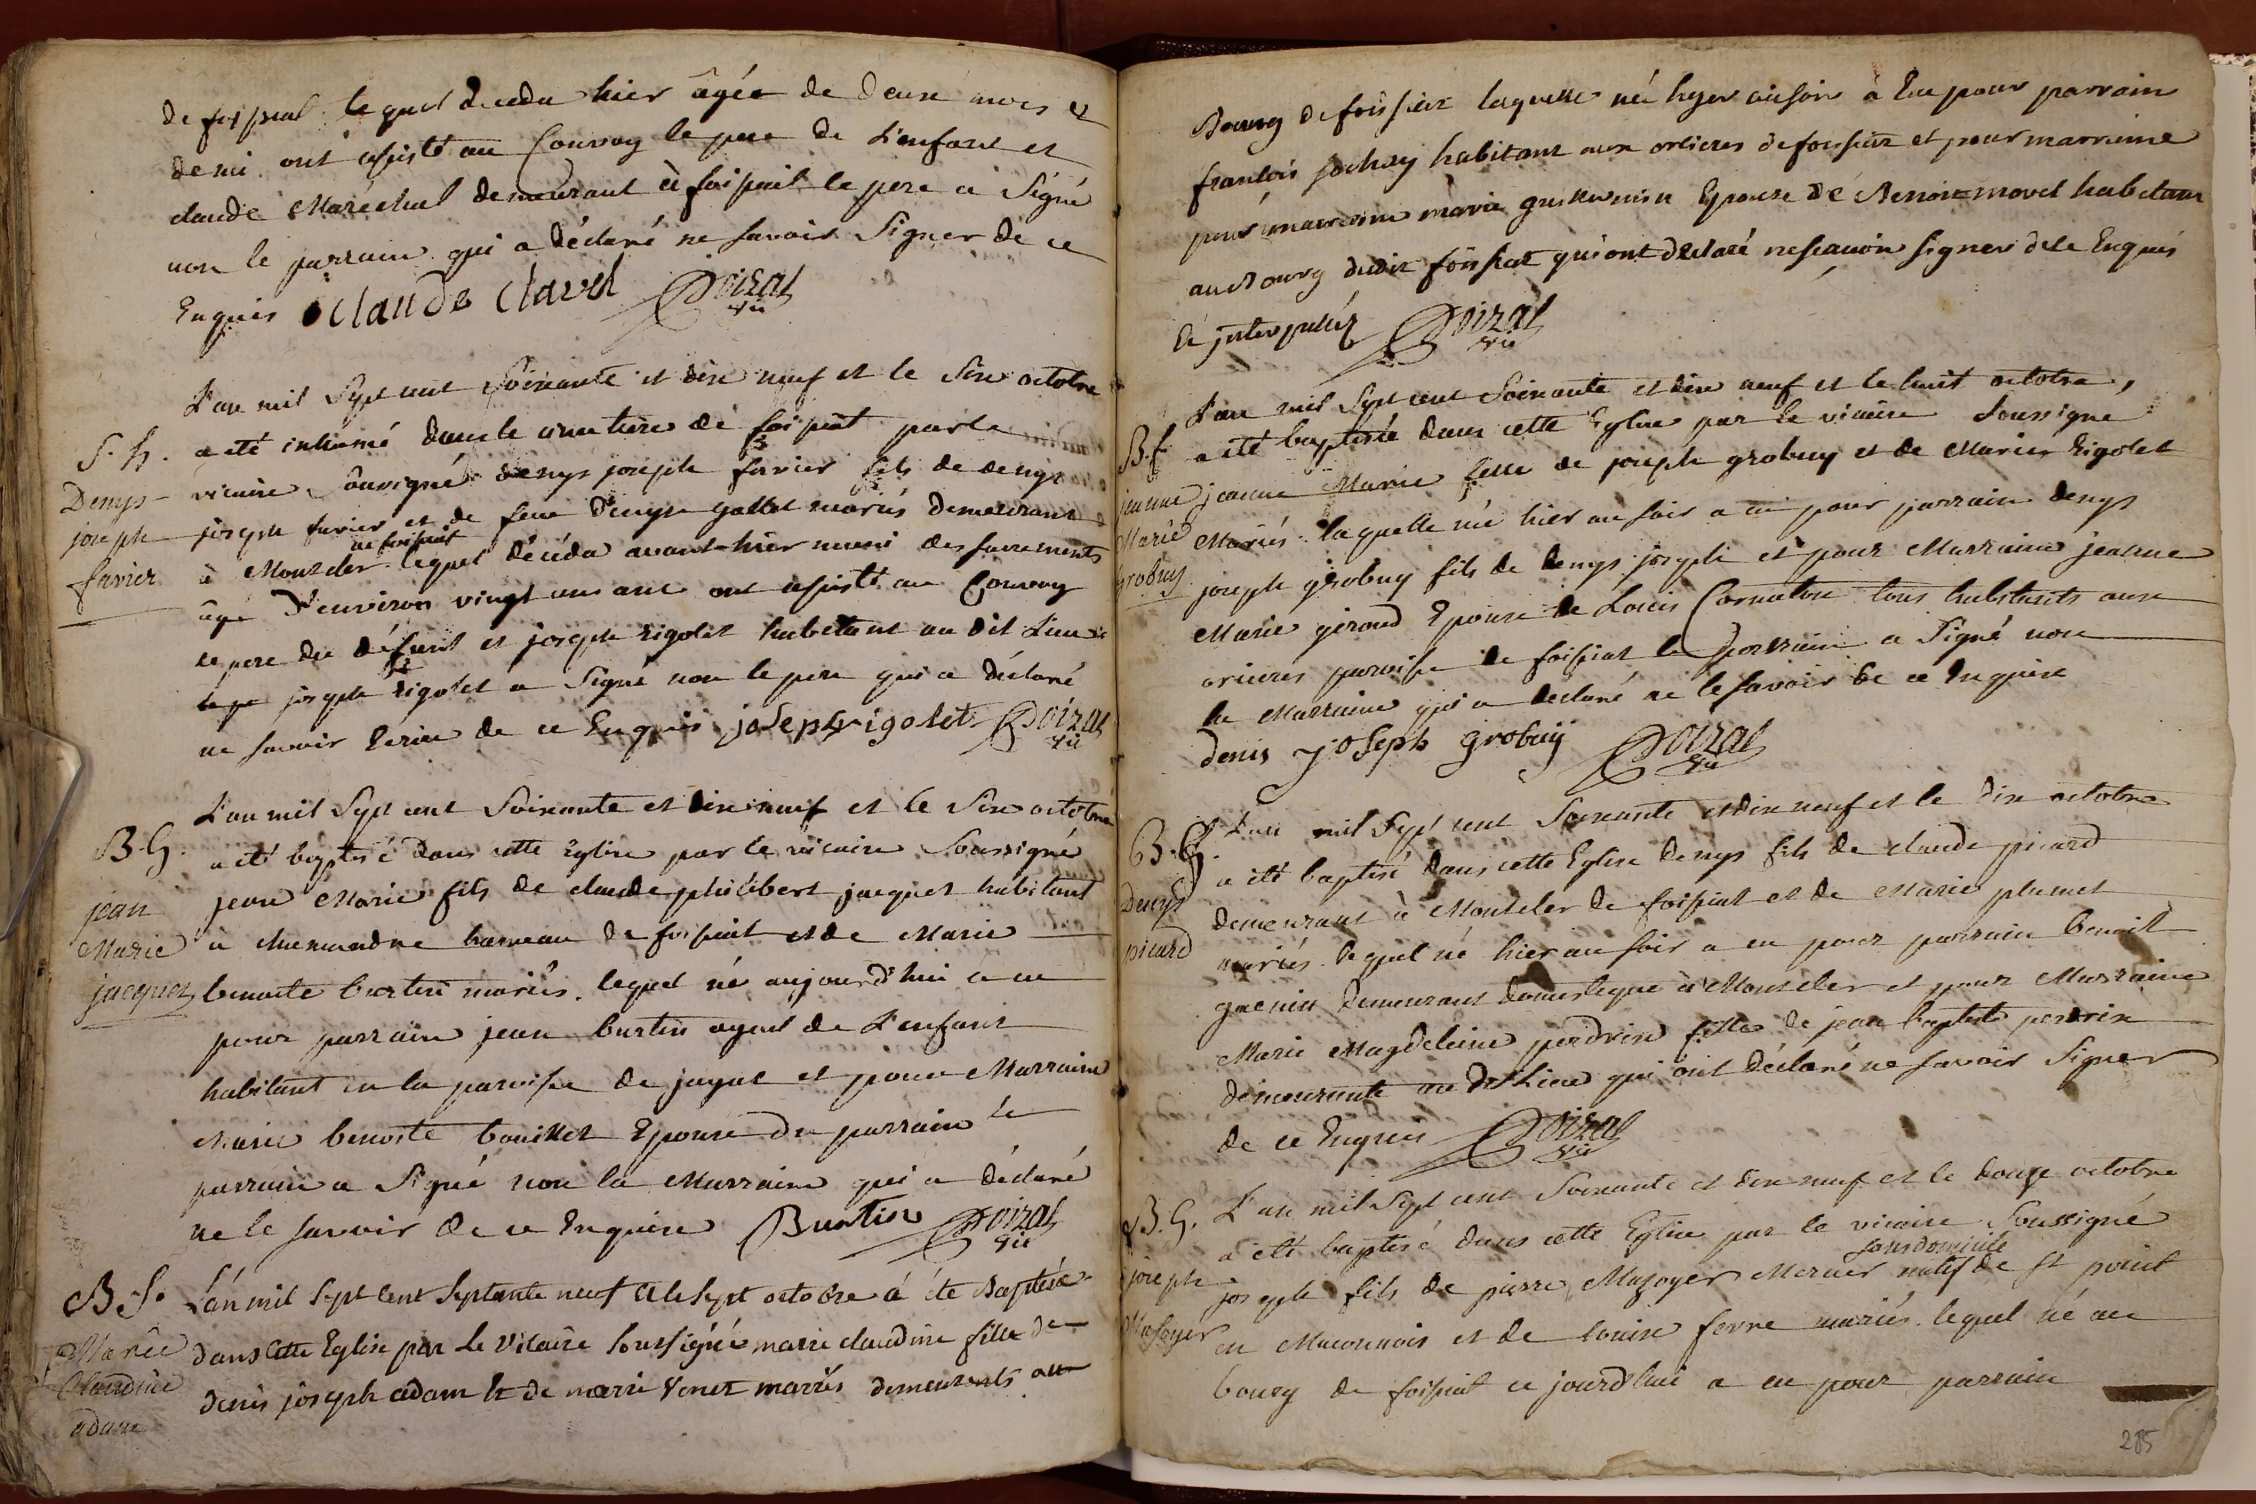 de foissiat lequel deceda hier âgée de deux mois et
demi ont assisté au Convoy le pere de L'enfant et
claude Maréchal demeurant à foissiat le pere a Signé
non le parrain qui a déclaré ne savoir Signer de ce
Enquis Claude Clavel Poizat
vic
L'an mil Sept cent Soixante et dix neuf et le Six octobre
S. h. a été inhumé dans le cimetiere de foissiat par le
Denys vicaire Soussigné denys joseph favier fils de denys
joseph joseph favier et de feue Denyse gallet mariés demeurant
de foissiat
favier à Monteler lequel décéda avant-hier muni des sacrements
âgé D'environ vingt un ans ont assisté au Convoy
le pere du défunt et joseph rigolet habitant au dit Lieu
joseph rigolet a Signé non le pere qui a déclaré
ne savoir Ecrire de ce Enquis joseph rigolet Poizat
vic
L'an mil Sept cent Soixante et dix neuf et le Six octobre
B. G. a été baptisé dans cette Eglise par le vicaire Soussigné
jean jean Marie fils de claude philibert jacquet habitant
Marie à hameau de foissiat et de Marie
jacquet benoite burtin mariés. lequel né aujourd'hui a eu
pour parrain jean burtin ayeul de L'enfant
habitant en la paroisse de jayat et pour Marraine
Marie benoite bouillet Epouse du parrain le
parrain a Signé non la Marraine qui a déclaré
ne le savoir de ce Enquise Burtin Poizat
vic
B. f. L'an mil Sept cent Septante neuf et le Sept octobre à été Baptisée
Marie dans Cette Eglise par Le Vicaire Soussigné marie claudine fille de
Claudine denis joseph adam et de marie Venet mariés demeurants au
adam
Bourg de foissiat laquelle née hyer au soir à Eu pour parrain
francois habitant aux orcieres de foissiat et pour marraine
pour marraine marie guillermin Epouse de Benoit morel habitant
au Bourg dudit foissiat qui ont déclaré ne scavoir signer de le Enquis
Et interpellés Poizat
vic
L'an mil Sept cent Soixante et dix neuf et le huit octobre,
B. f a été baptisée dans cette Eglise par le vicaire Soussigné
jeanne jeanne Marie fille de joseph grobuy et de Marie rigolet
Marie Mariés. laquelle née hier au soir a eu pour parrain denys
grobuy joseph grobuy fils de denys joseph et pour Marraine jeanne
Marie giroud Epouse de Louis Cornaton tous habitants aux
orcieres paroisse de foissiat le parrain a Signé non
la Marraine qui a declaré ne le savoir de ce Enquise
denis joseph grobuy Poizat
vic
B. G. L'an mil Sept cent Soixante et dix neuf et le dix octobre
a été baptisé dans cette Eglise denys fils de claude picard
Denys demeurant à Monteler de foissiat et de Marie plumet
picard mariés. lequel né hier au soir a eu pour parrain benoit
guenin demeurant domestique à Monteler et pour Marraine
Marie Magdeleine perdrix fille de jean baptiste perdrix
demeurante au dit Lieu qui ont déclaré ne savoir Signer
de ce Enquis Poizat
vic
L'an mil Sept cent Soixante et dix neuf et le douze octobre
B. G. a été baptisé dans cette Eglise par le vicaire Soussigné
sans domicile
joseph joseph fils de pierre Mazoyer Mercier natif de St point
Mazoyer en Maconnois et de louise ferre mariés. lequel né au
bourg de foissiat ce jourd'hui a eu pour parrain
285